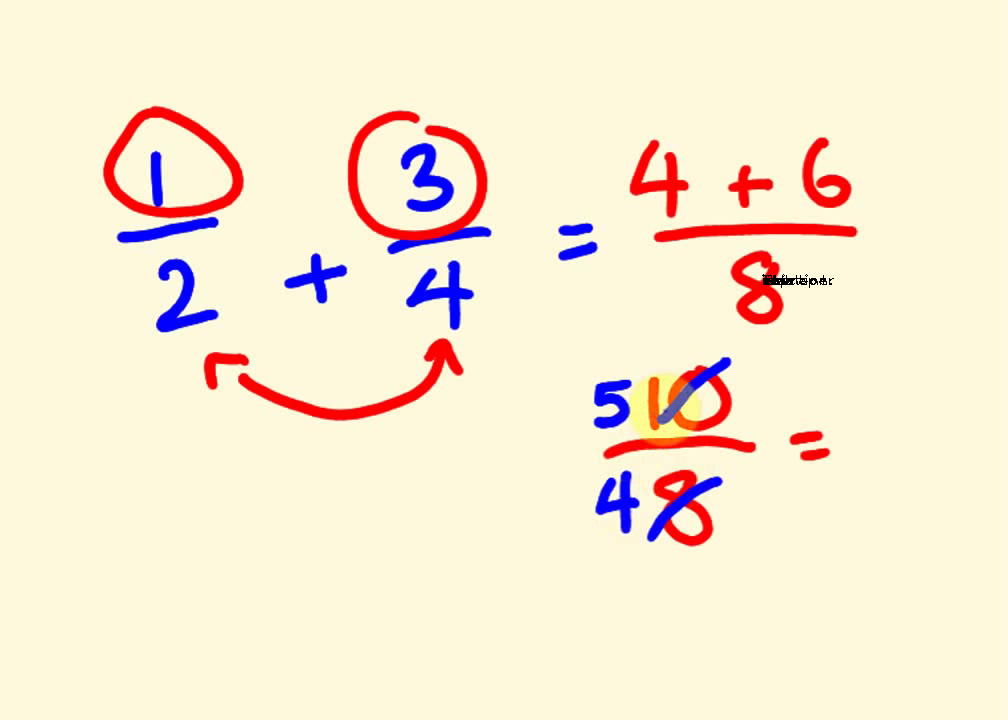 1/2 + 3/4 = (4 + 6)/8
5 10
4 8 =